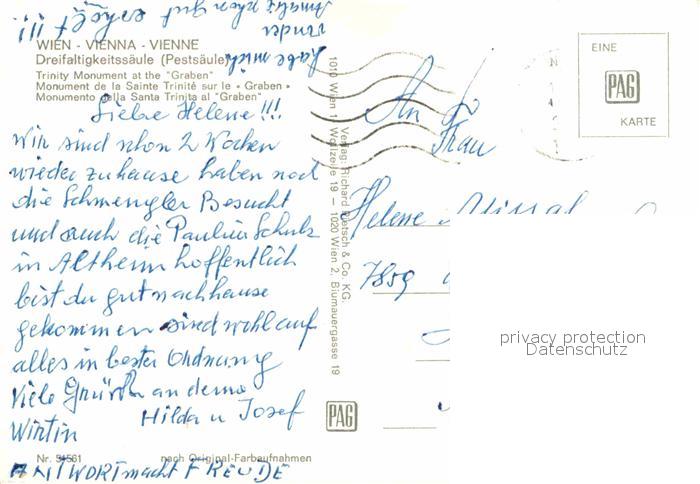 WIEN - VIENNA - VIENNE
Dreifaltigkeitssäule (Pestsäule)
Trinity Monument at the "Graben"
Monument de la Sainte Trinité sur le « Graben »
Monumento della Santra Trinita al "Graben"
Liebe Helene!!!
Wir sind schon 2 Wochen
wieder zuhause haben noch
die Schmengler Besucht
und auch die Paulina Schulz
in Altheim hoffentlich
bist du gut nachhause
gekommen sind wohlauf
alles in bester Ordnung
Viele Grüße an deine
Wirtin
Hilda u Josef
ANTWORT macht FREUDE
habe mich
wieder
schon gut erholt !!!
Nr. 51561
nach Original-Farbaufnahmen
Verlag: Richard Pietsch & Co. KG.
1010 Wien 1, Wollzeile 19 — 1020 Wien 2, Blumauergasse 19
PAG
EINE
PAG
KARTE
An
Frau
Helene
7859
privacy protection
Datenschutz